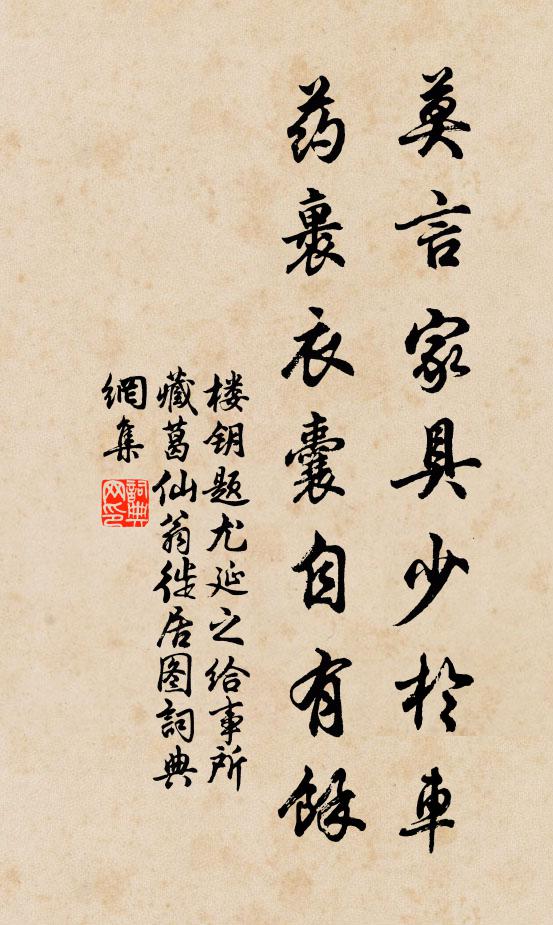 莫言家具少於車
药裹衣囊自有餘
楼钥题尤延之给事所
藏葛仙翁徙居图詞典
網集
詞典
网印